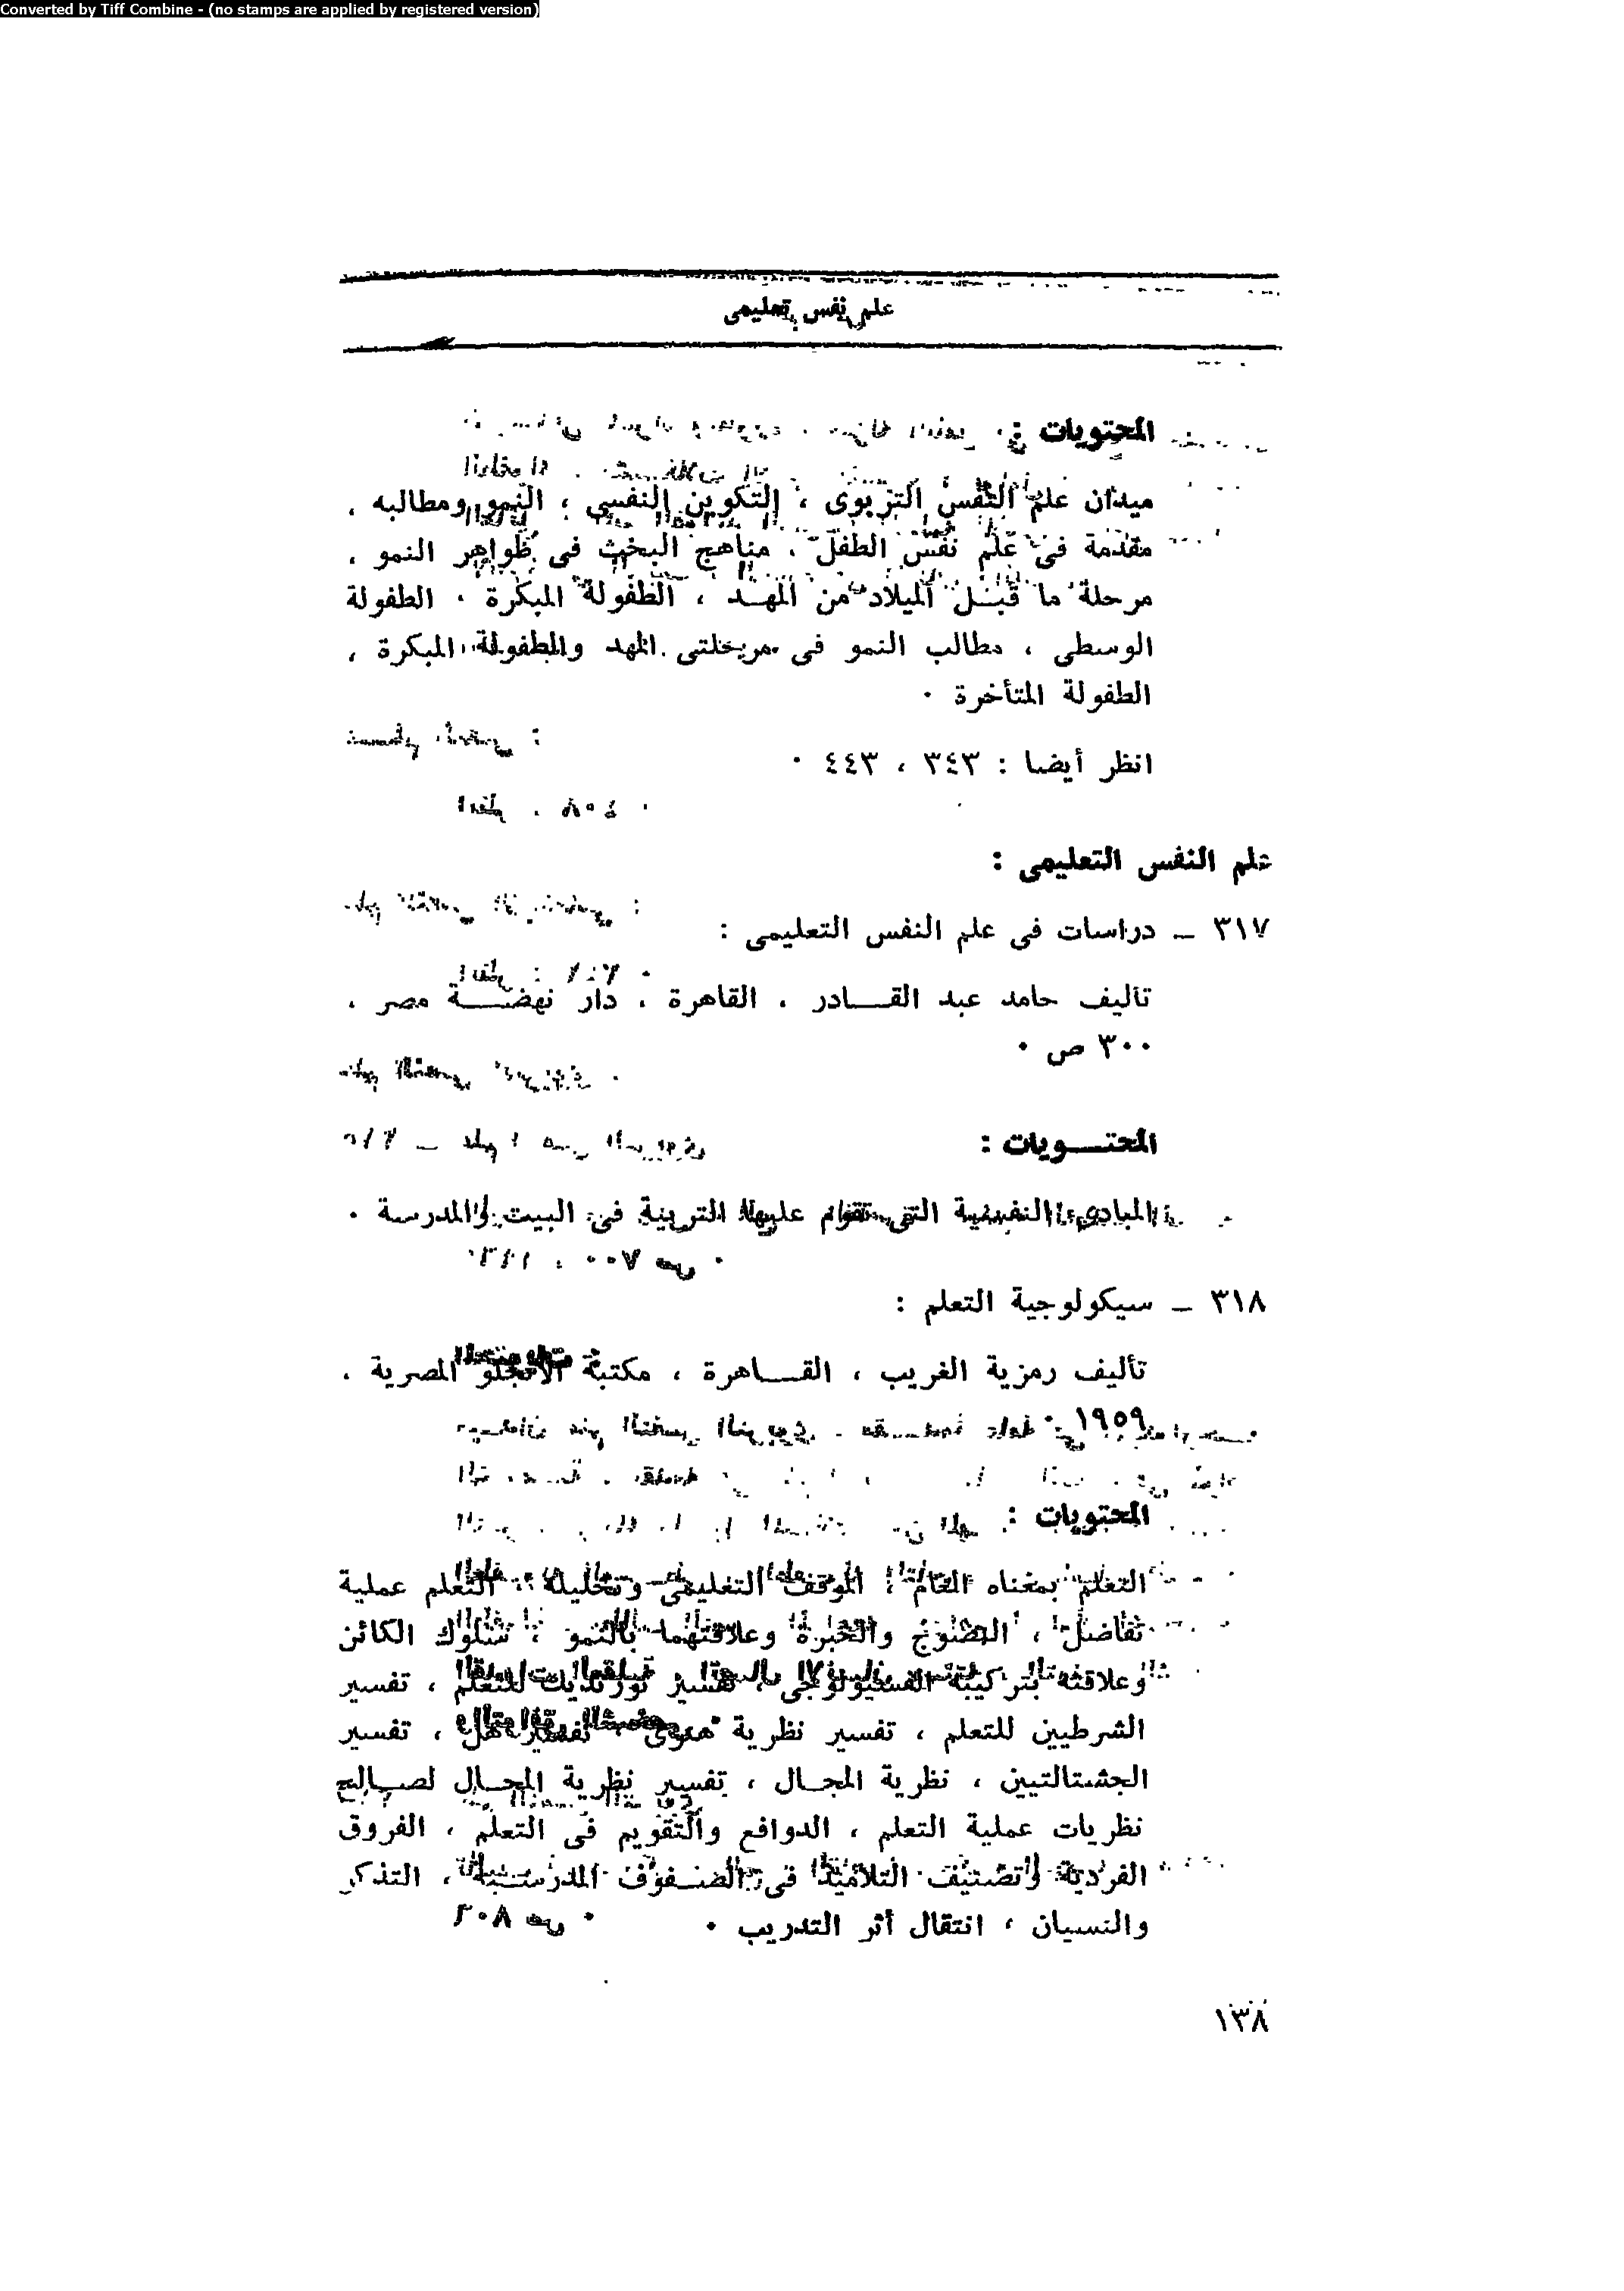 Converted by Tiff Combine - (no stamps are applied by registered version)
علم نفس تعليمى
المحتويات :
ميدان علم النفس التربوى ، التكوين النفسى ، النمو ومطالبه ،
مقدمة فى علم نفس الطفل ، مناهج البحث فى ظواهر النمو ،
مرحلة ما قبـل الميلاد من المهـد ، الطفولة المبكرة ٠ الطفولة
الوسطى ، مطالب النمو فى مرحلتى المهد والطفولة المبكرة ،
الطفولة المتأخرة ٠
انظر أيضا : ٣٤٣ ، ٤٤٣ ٠
علم النفس التعليمى :
٣١٧ ــ دراسات فى علم النفس التعليمى :
تأليف حامد عبد القـــادر ، القاهرة ، دار نهضـــة مصر ،
٣٠٠ ص ٠
المحتـــويات :
المبادىء النفسية التى تقوم عليها التربية فى البيت والمدرسة ٠
٣١٨ ــ سيكولوجية التعلم :
تأليف رمزية الغريب ، القـــاهرة ، مكتبة الأنجلو المصرية ،
١٩٥٩ ٠
المحتويات :
التعلم بمعناه العام ، الموقف التعليمى وتحليله ، التعلم عملية
تفاضل ، النضوج والخبرة وعلاقتهما بالنمو ، سلوك الكائن
وعلاقته بتركيبه الفسيولوجى ، تفسير ثورنديك للتعلم ، تفسير
الشرطيين للتعلم ، تفسير نظرية تفسير هل ، تفسير
الجشتالتيين ، نظرية المجـال ، تفسير نظرية المجـال لصـالح
نظريات عملية التعلم ، الدوافع والتقويم فى التعلم ، الفروق
الفردية وتصنيف التلاميذ فى الصـفوف المدرسـية ، التذكر
والنسيان ، انتقال أثر التدريب ٠
١٣٨